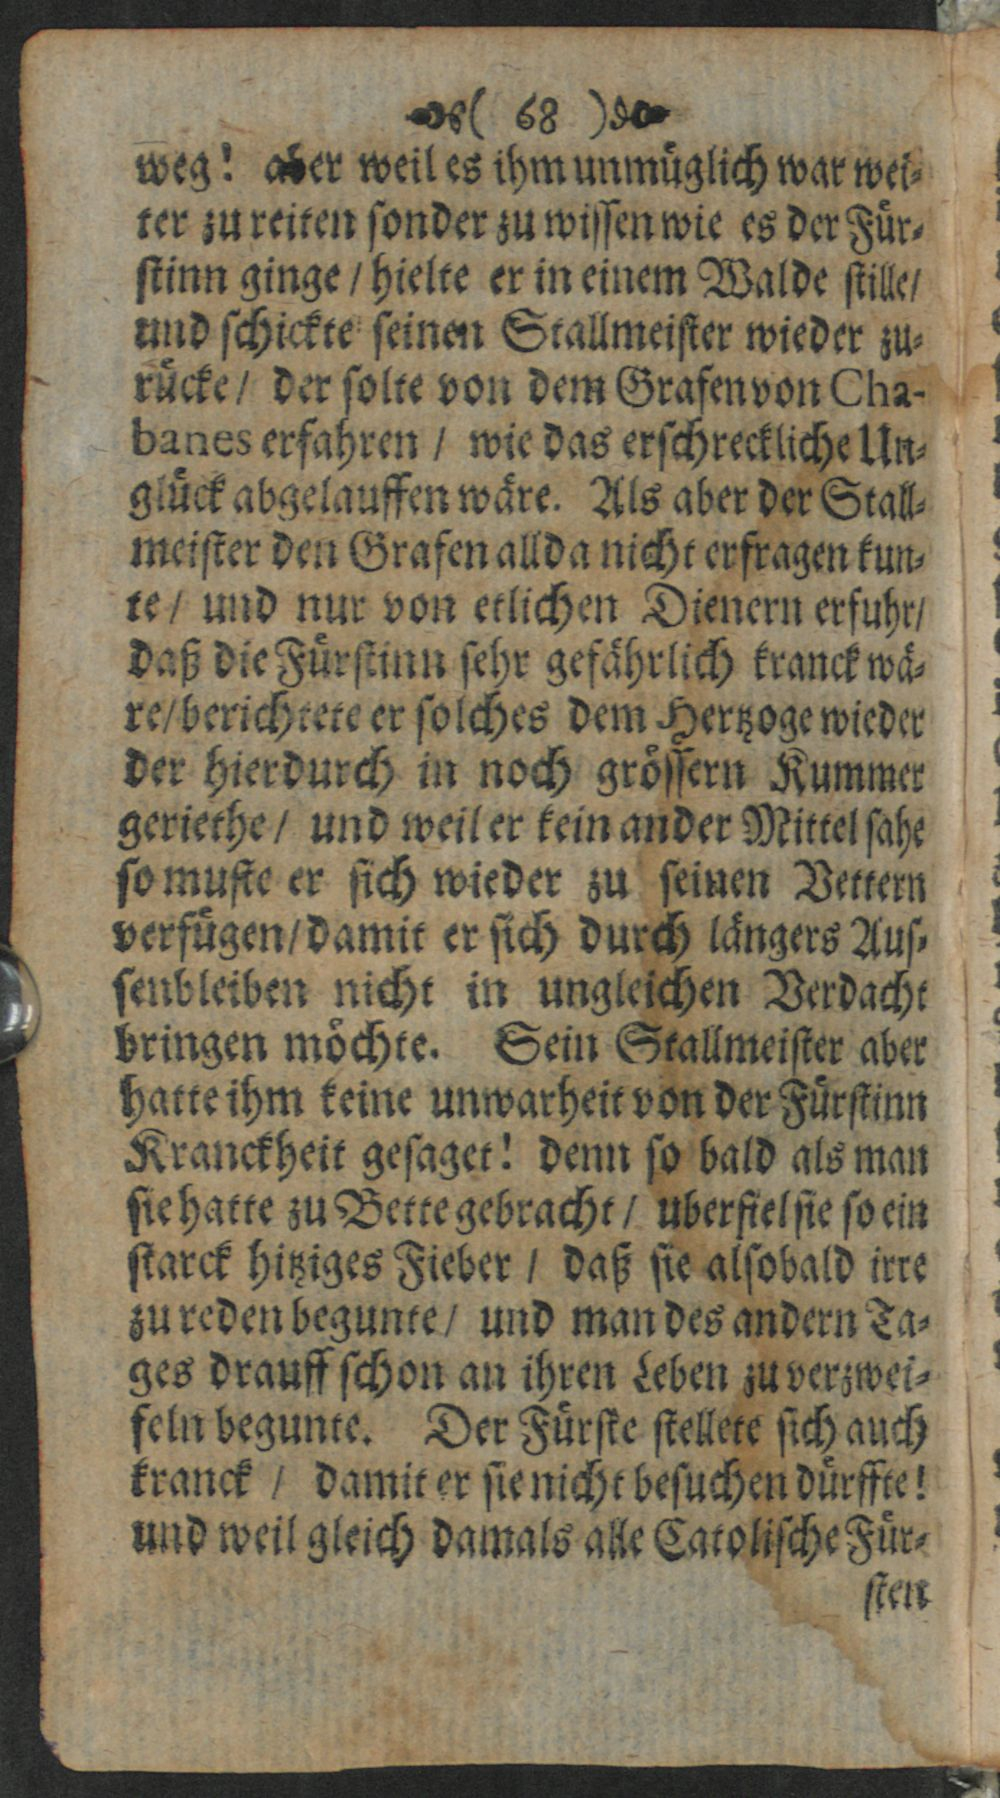 ( 68 )
weg! aber weil es ihm unmüglich war wei-
ter zu reiten sonder zu wissen wie es der Für-
stinn ginge / hielte er in einem Walde stille /
und schickte seinen Stallmeister wieder zu-
rücke / der solte von dem Grafen von Cha-
banes erfahren / wie das erschreckliche Un-
glück abgelauffen wäre. Als aber der Stall-
meister den Grafen allda nicht erfragen kun-
te / und nur von etlichen Dienern erfuhr /
daß die Fürstinn sehr gefährlich kranck wä-
re / berichtete er solches dem Hertzoge wieder
der hierdurch in noch grössern Kummer
geriethe / und weil er kein ander Mittel sahe
so muste er sich wieder zu seinen Vettern
verfügen / damit er sich durch längers Aus-
senbleiben nicht in ungleichen Verdacht
bringen möchte. Sein Stallmeister aber
hatte ihm keine unwarheit von der Fürstinn
Kranckheit gesaget! denn so bald als man
sie hatte zu Bette gebracht / uberfiel sie so ein
starck hitziges Fieber / daß sie alsobald irre
zu reden begunte / und man des andern Ta-
ges drauff schon an ihren Leben zu verzwei-
feln begunte. Der Fürste stellete sich auch
kranck / damit er sie nicht besuchen dürffte!
und weil gleich damals alle Catolische Für-
sten